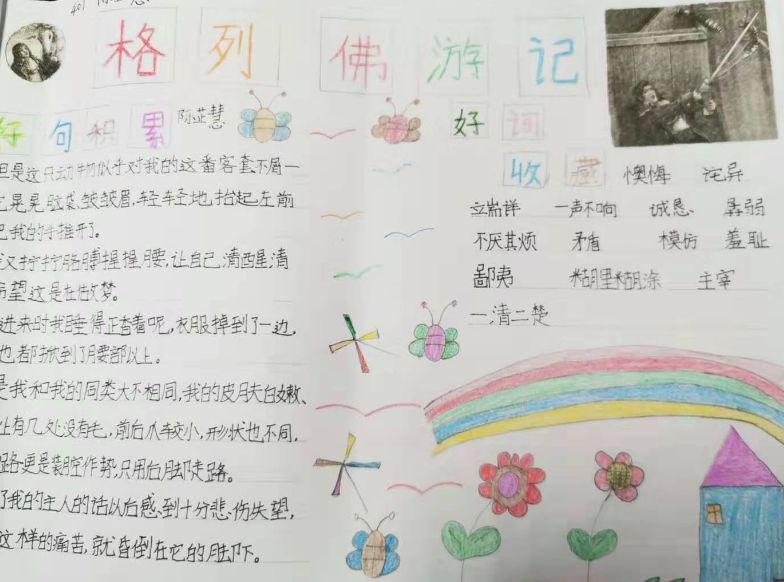 401
格列佛游记
好句积累
陈芷慧
但是这只动物似乎对我的这番客套不屑一
它晃晃脑袋,皱皱眉,轻轻地抬起左前
把我的手推开了。
又拧拧胳膊捏捏腰,让自己清醒清
希望这是在做梦。
进来时我睡得正香着呢,衣服掉到了一边,
也都掀到了腰部以上。
是我和我的同类大不相同,我的皮肤白嫩、
上有几处没有毛,前后爪较小,形状也不同,
路更是装腔作势,只用后脚走路。
了我的主人的话以后感到十分悲伤失望,
这样的痛苦,就昏倒在它的脚下。
好词
收藏
懊悔 诧异
立端详 一声不响 诚恳 孱弱
不厌其烦 矛盾 模仿 羞耻
鄙夷 糊里糊涂 主宰
一清二楚